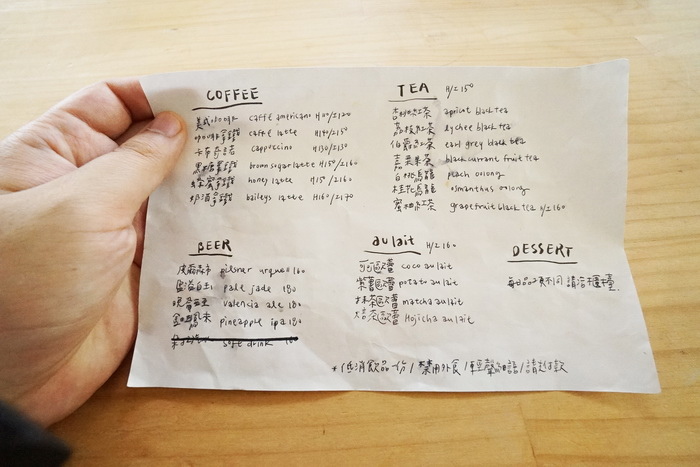 COFFEE
美式咖啡 caffé americano H100/I120
咖啡拿鐵 caffé latte H140/I150
卡布奇諾 cappuccino H130/I150
黑糖拿鐵 brown sugar latte H150/I160
蜂蜜拿鐵 honey latte H150/I160
奶酒拿鐵 baileys latte H160/I170
TEA H/I 150
杏桃紅茶 apricot black tea
荔枝紅茶 lychee black tea
伯爵紅茶 earl grey black tea
黑果茶 blackcurrant fruit tea
白桃烏龍 peach oolong
桂花烏龍 osmanthus oolong
蜜柚紅茶 grapefruit black tea H/I 160
BEER
pilsner urquell 160
pale jade 180
valencia ale 180
pineapple ipa 180
soft drink
au lait H/I 160
可可歐蕾 coco au lait
紫薯歐蕾 potato au lait
抹茶歐蕾 matcha au lait
焙茶歐蕾 Hojicha au lait
DESSERT
每日品項不同 請洽櫃檯.
*低消飲品一份/禁用外食/輕聲細語/請付款